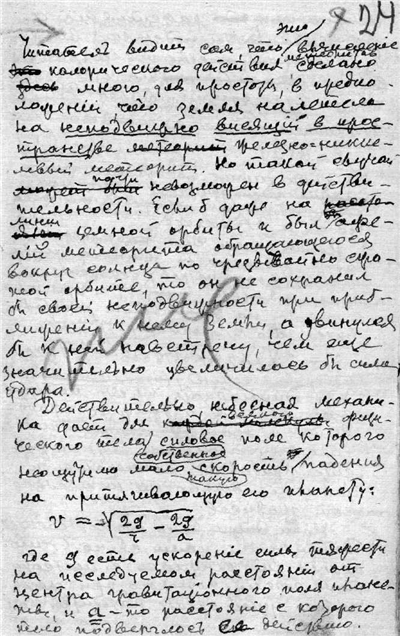 24
это
Читатель видит сам, что вычисление
калорического действия метеорита сделано
много, для простоты, в предпо-
ложении что земля налетела
на неподвижно висящий в прос-
транстве железно-никке-
левый метеорит. Но такой случай
почти невозможен в действи-
тельности. Если б даже на
линии земной орбиты и был
метеорита обращающегося
вокруг солнца по чрезвычайно
орбите, то он не сохранил
бы своей неподвижности при приб-
лижении к нему земли, а двинулся
бы к ней навстречу, чем еще
значительно увеличилось бы сила
удара.
Действительно небесная механи-
ка дает для физи-
ческого тела силовое поле которого
собственное
неощутимо мало, скорость падения
такую
на притягивающую его планету:
v = √(2g/r − 2g/a)
где g есть ускорение силы тяжести
на исследуемом расстоянии от
центра гравитационного поля плане-
ты, и a — то расстояние с которого
тело подверглось её действию.